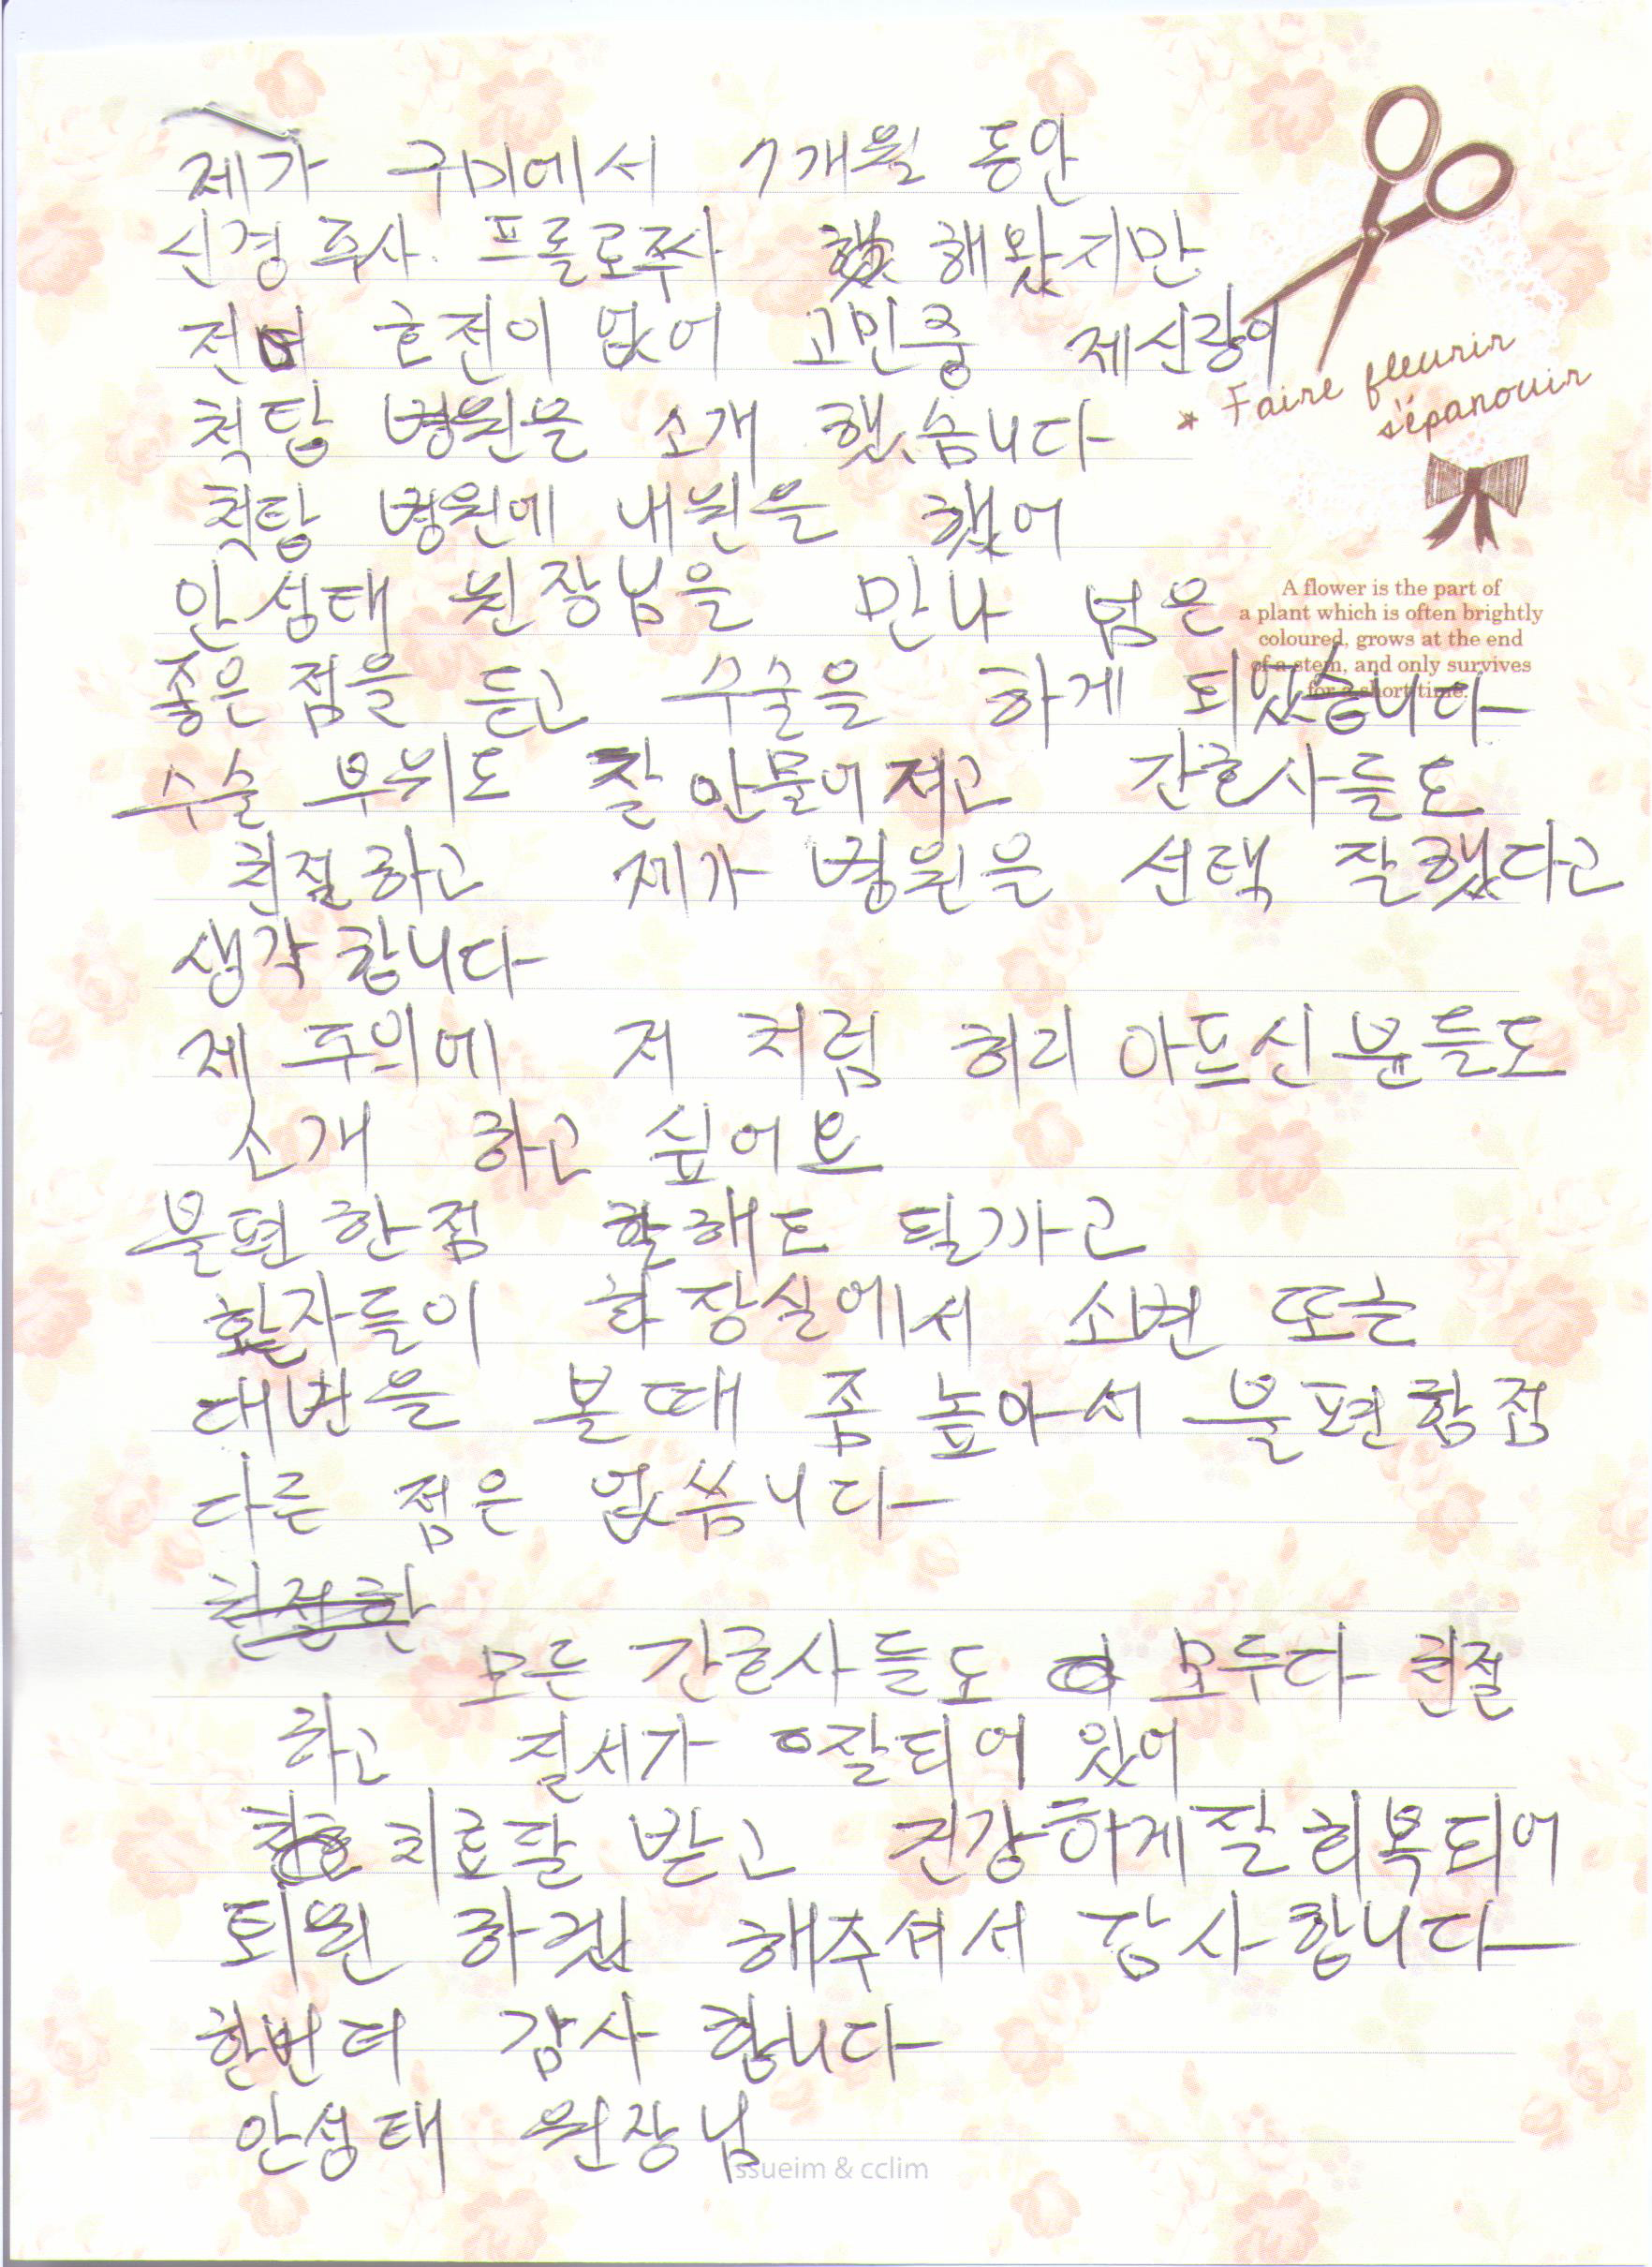 제가 구미에서 7개월 동안
신경 주사 프롤로주사 해왔지만
전여 호전이 없어 고민중 제신랑이
척탑 병원을 소개 했슴니다
척탑 병원에 내원을 했어
안성태 원장님을 만나 넘은
좋은 점을 듣고 수술을 하게 되었습니다
수술 부위도 잘 안물어져고 간호사들도
친절하고 제가 병원은 선택 잘했다고
생각 합니다
제 주의에 저 처럼 허리 아프신 분들도
소개 하고 싶어요
불편 한점 해도 될까고
환자들이 화장실에서 소변 또는
대변을 볼때 좀 높아서 불편함점
다른 점은 없씀니다
모든 간호사들도 모두다 친절
하고 질서가 잘되어 있어
치료잘 받고 건강하게 잘 회복되어
퇴원 하겠 해주셔서 감사 합니다
한번더 감사 합니다
안성태 원장님
* Faire fleurir
s'épanouir
A flower is the part of
a plant which is often brightly
coloured, grows at the end
of a stem, and only survives
for a short time.
ssueim & cclim